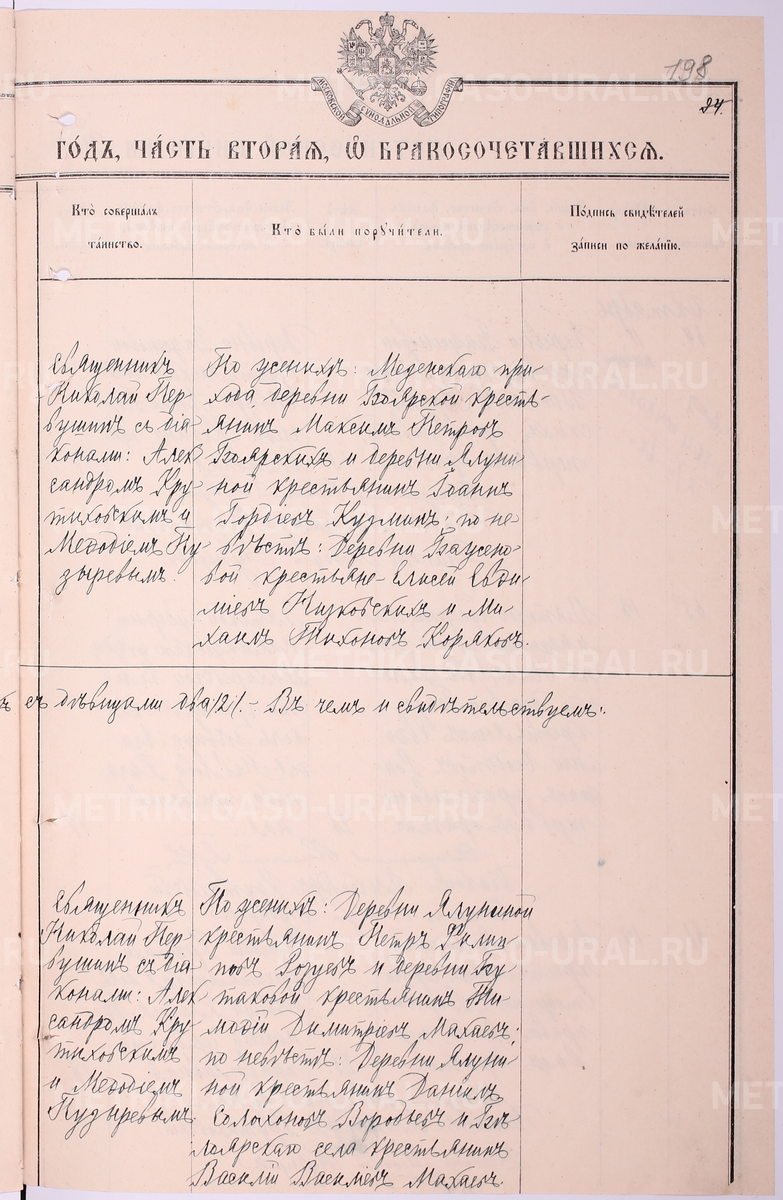 198
24.
МОСКОВСКОЙ СѴНОДАЛЬНОЙ ТИПОГРАФІИ
ГО́ДЪ, ЧА́СТЬ ВТОРА́Я, Ѽ БРАКОСОЧЕТА́ВШИХСЯ.
Кто̀ соверша́лъ
та́инство.
Кто̀ бы́ли поручи́тели.
По́дпись свидѣ́телей
за́писи по жела́нїю.
Священникъ
Николай Пер-
вушинъ съ діа-
конами: Алек
сандромъ Кру
тиховскимъ и
Меѳодіемъ Пу
зыревымъ.
По женихѣ: Меденскаго при-
хода, деревни Боярской кресть-
янинъ Максимъ Петровъ
Боярскихъ и деревни Ялуни
ной крестьянинъ Іоаннъ
Гордіевъ Кузминъ; по не-
вѣстѣ: Деревни
вой крестьяне – Елисей Евфи-
міевъ Низковскихъ и Ми-
хаилъ Тихоновъ Коряковъ.
съ дѣвицами два /2/. – Въ чемъ и свидѣтельствуемъ:
Священникъ
Николай Пер-
вушинъ съ діа
конами: Алек
сандромъ Кру
тиховскимъ
и Меѳодіемъ
Пузыревымъ.
По женихѣ: Деревни Ялуниной
крестьянинъ Петръ Филип
повъ и деревни Бу
таковой крестьянинъ Ти-
моѳій Димитріевъ Махаевъ;
по невѣстѣ: Деревни Ялуни
ной крестьянинъ Даніилъ
Воробьевъ и Бѣ
лоярскаго села крестьянинъ
Василій Василіевъ Махаевъ.
METRIKI.GASO-URAL.RU